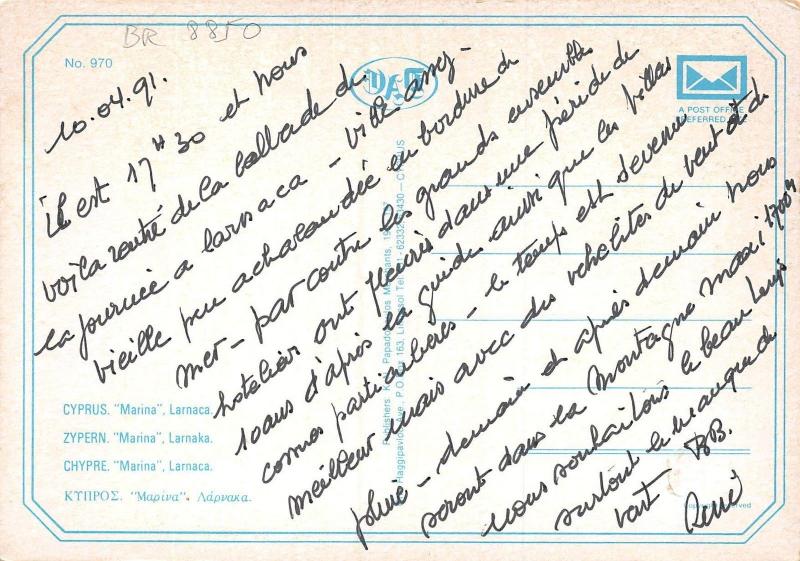 BR 8850
No. 970
A POST OFFICE
PREFERRED
10.04.91.
il est 17H30 et nous
voila rentré de la ballade de
la journée a larnaca - ville assez
vieille peu achalandée en bordure de
mer - par contre les grands ensembles
hotelier ont fleuris dans une période de
10 ans d'après la guide ainsi que les villas
comes particulieres - le temps est devenu
meilleur mais avec des velolites de vent et de
pluie - demain et après demain nous
seront dans la montagne maxi 1700m
nous souhaitons le beau temps
surtout le manque de
vent BB.
René
CYPRUS. "Marina", Larnaca.
ZYPERN. "Marina", Larnaka.
CHYPRE. "Marina", Larnaca.
ΚΥΠΡΟΣ. "Μαρίνα" Λάρνακα.